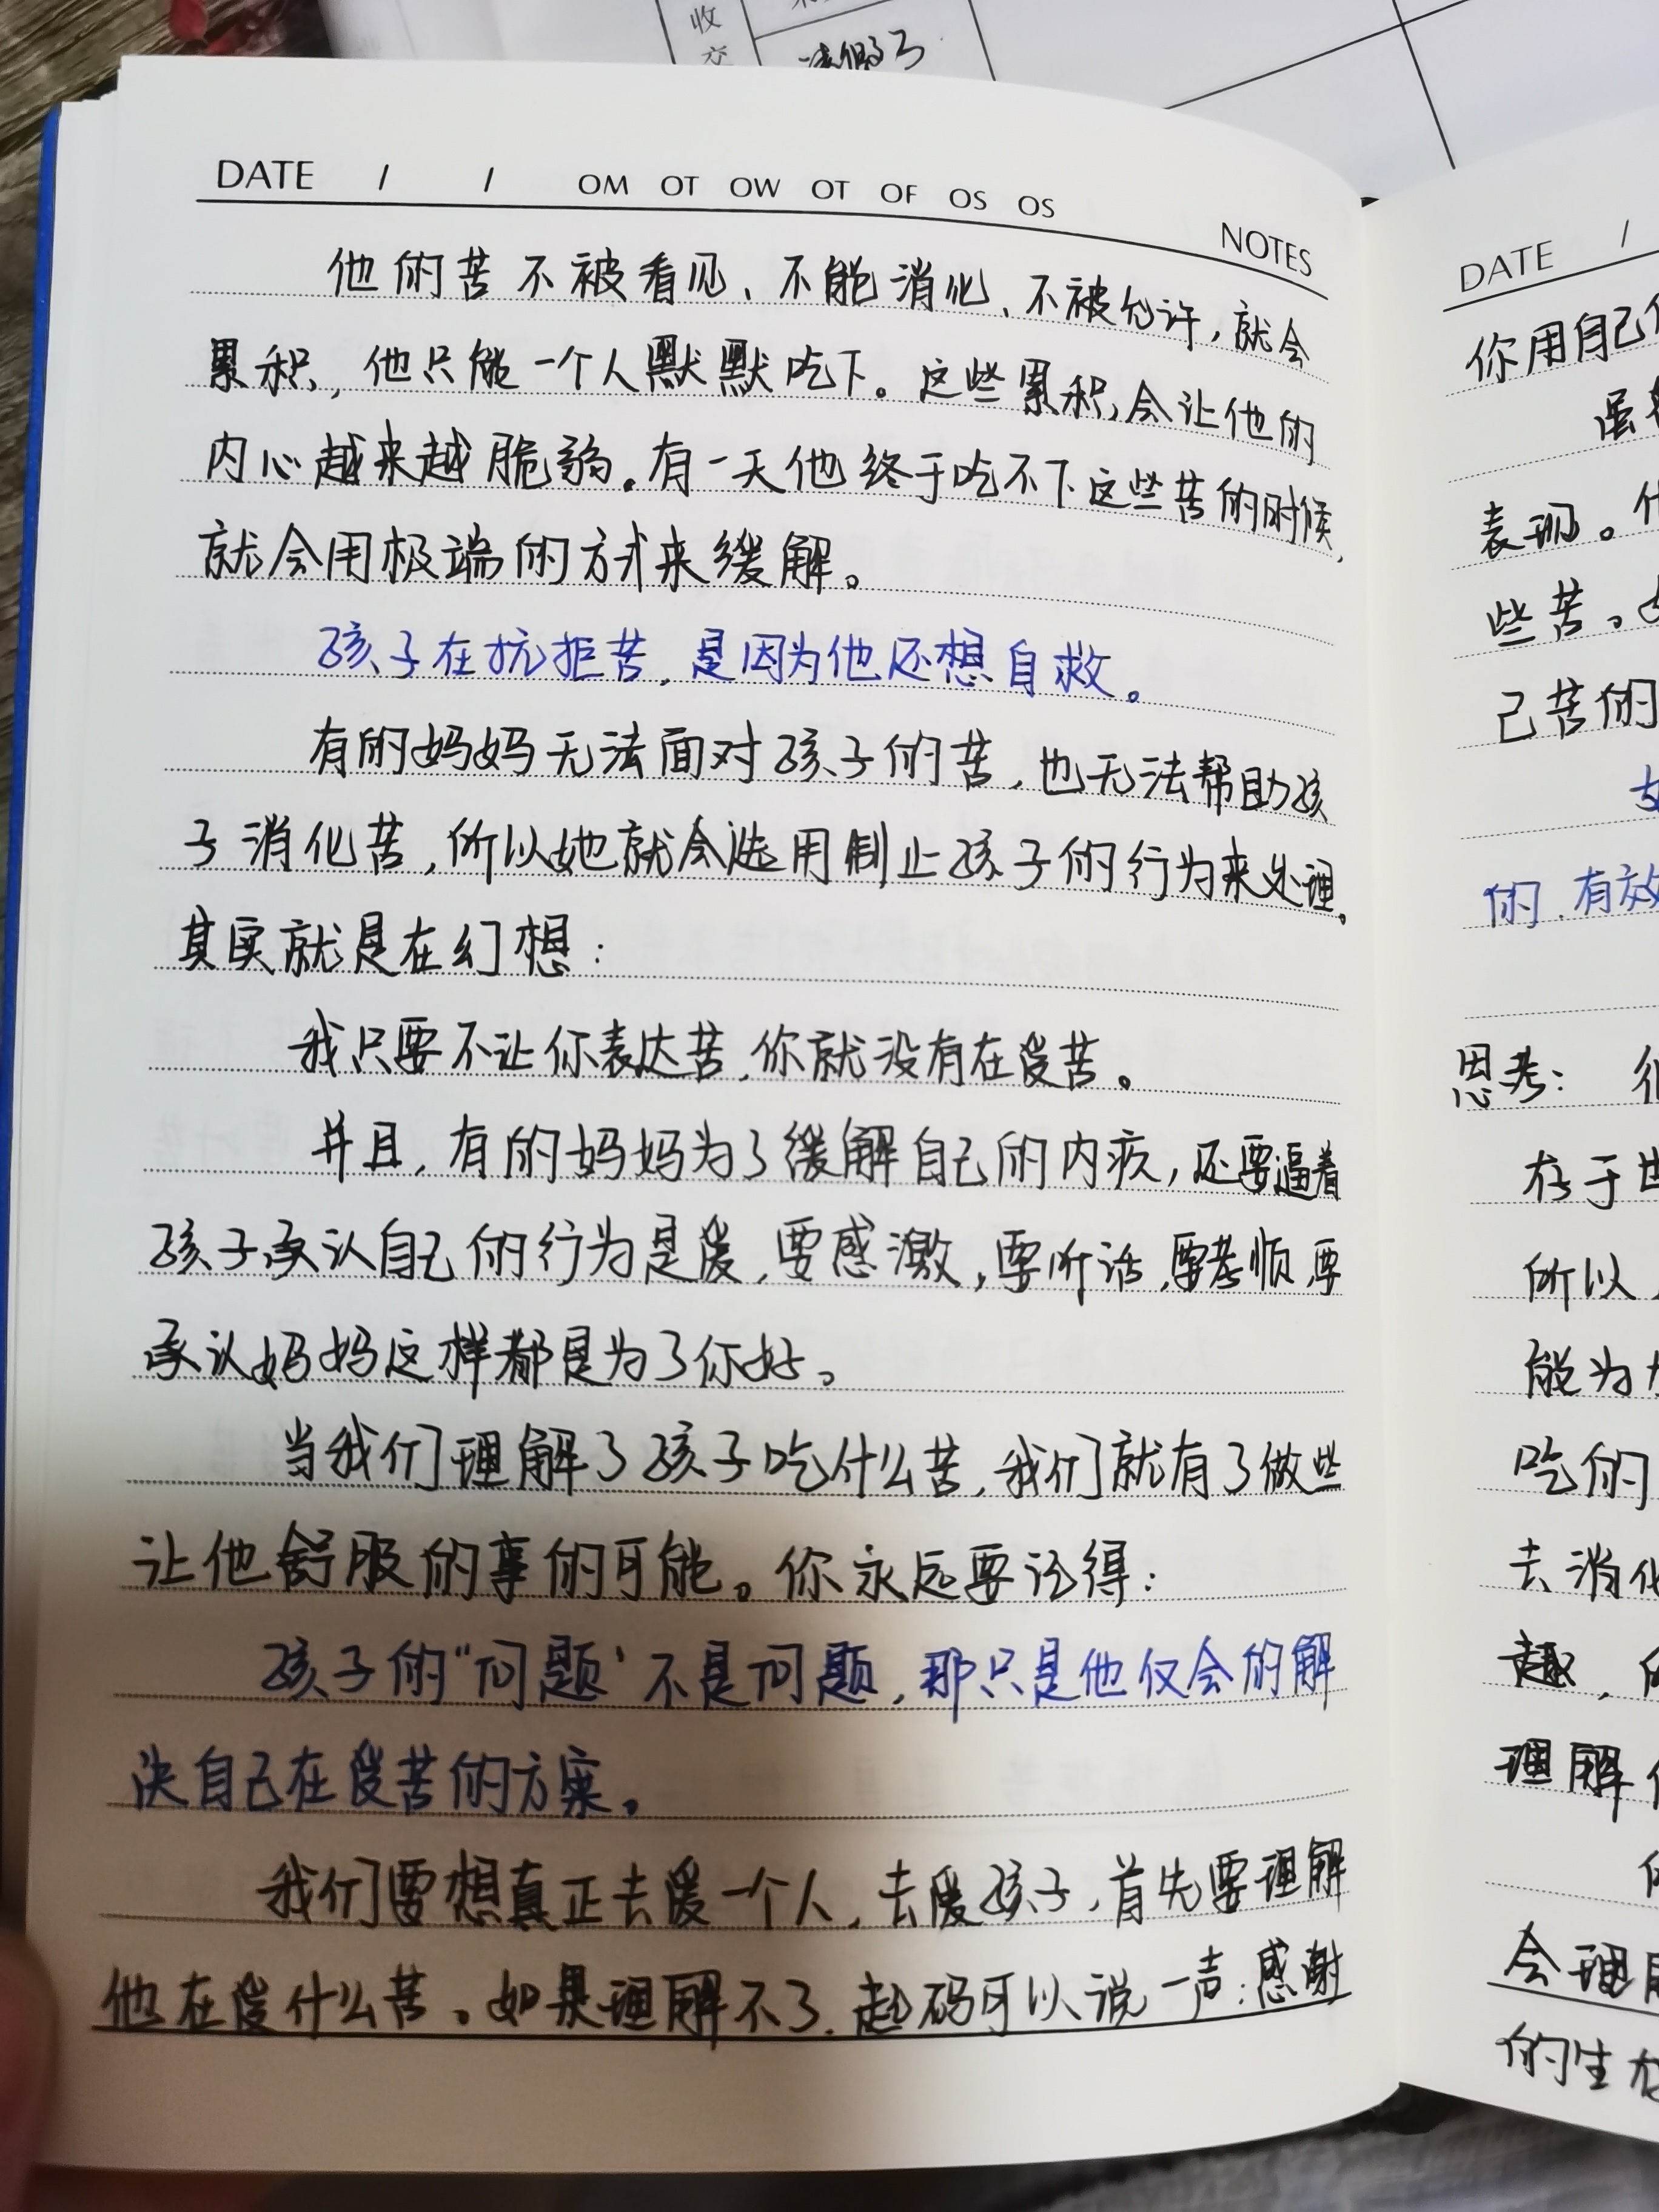 收
交
DATE / / OM OT OW OT OF OS OS
NOTES
他的苦不被看见、不能消化、不被允许，就会
累积，他只能一个人默默吃下。这些累积，会让他的
内心越来越脆弱。有一天他终于吃不下这些苦的时候，
就会用极端的方式来缓解。
孩子在抗拒苦，是因为他还想自救。
有的妈妈无法面对孩子的苦，也无法帮助孩
子消化苦，所以她就会选用制止孩子的行为来处理。
其实就是在幻想：
我只要不让你表达苦，你就没有在受苦。
并且，有的妈妈为了缓解自己的内疚，还要逼着
孩子承认自己的行为是爱，要感激，要听话，要孝顺，要
承认妈妈这样都是为了你好。
当我们理解了孩子吃什么苦，我们就有了做些
让他舒服的事的可能。你永远要记得：
孩子的“问题’不是问题，那只是他仅会的解
决自己在受苦的方案。
我们要想真正去爱一个人，去爱孩子，首先要理解
他在受什么苦。如果理解不了，起码可以说一声：感谢
DATE /
你用自己
表现。
些苦。
己苦的
的，有效
思考：
存于世
所以
能为
吃的
去消化
趣，
理解
会理解
的生